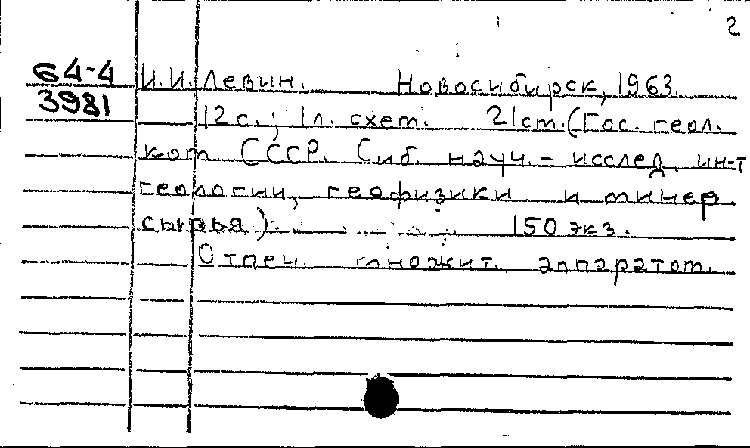 2
64-4 И.И. Левин. Новосибирск, 1963.
3981 12 с.; 1 л. схем. 21 см. (Гос. геол.
ком. СССР. Сиб. науч.-исслед. ин-т
геологии, геофизики и минер
сырья). 150 экз.
Отпеч. множит. аппаратом.